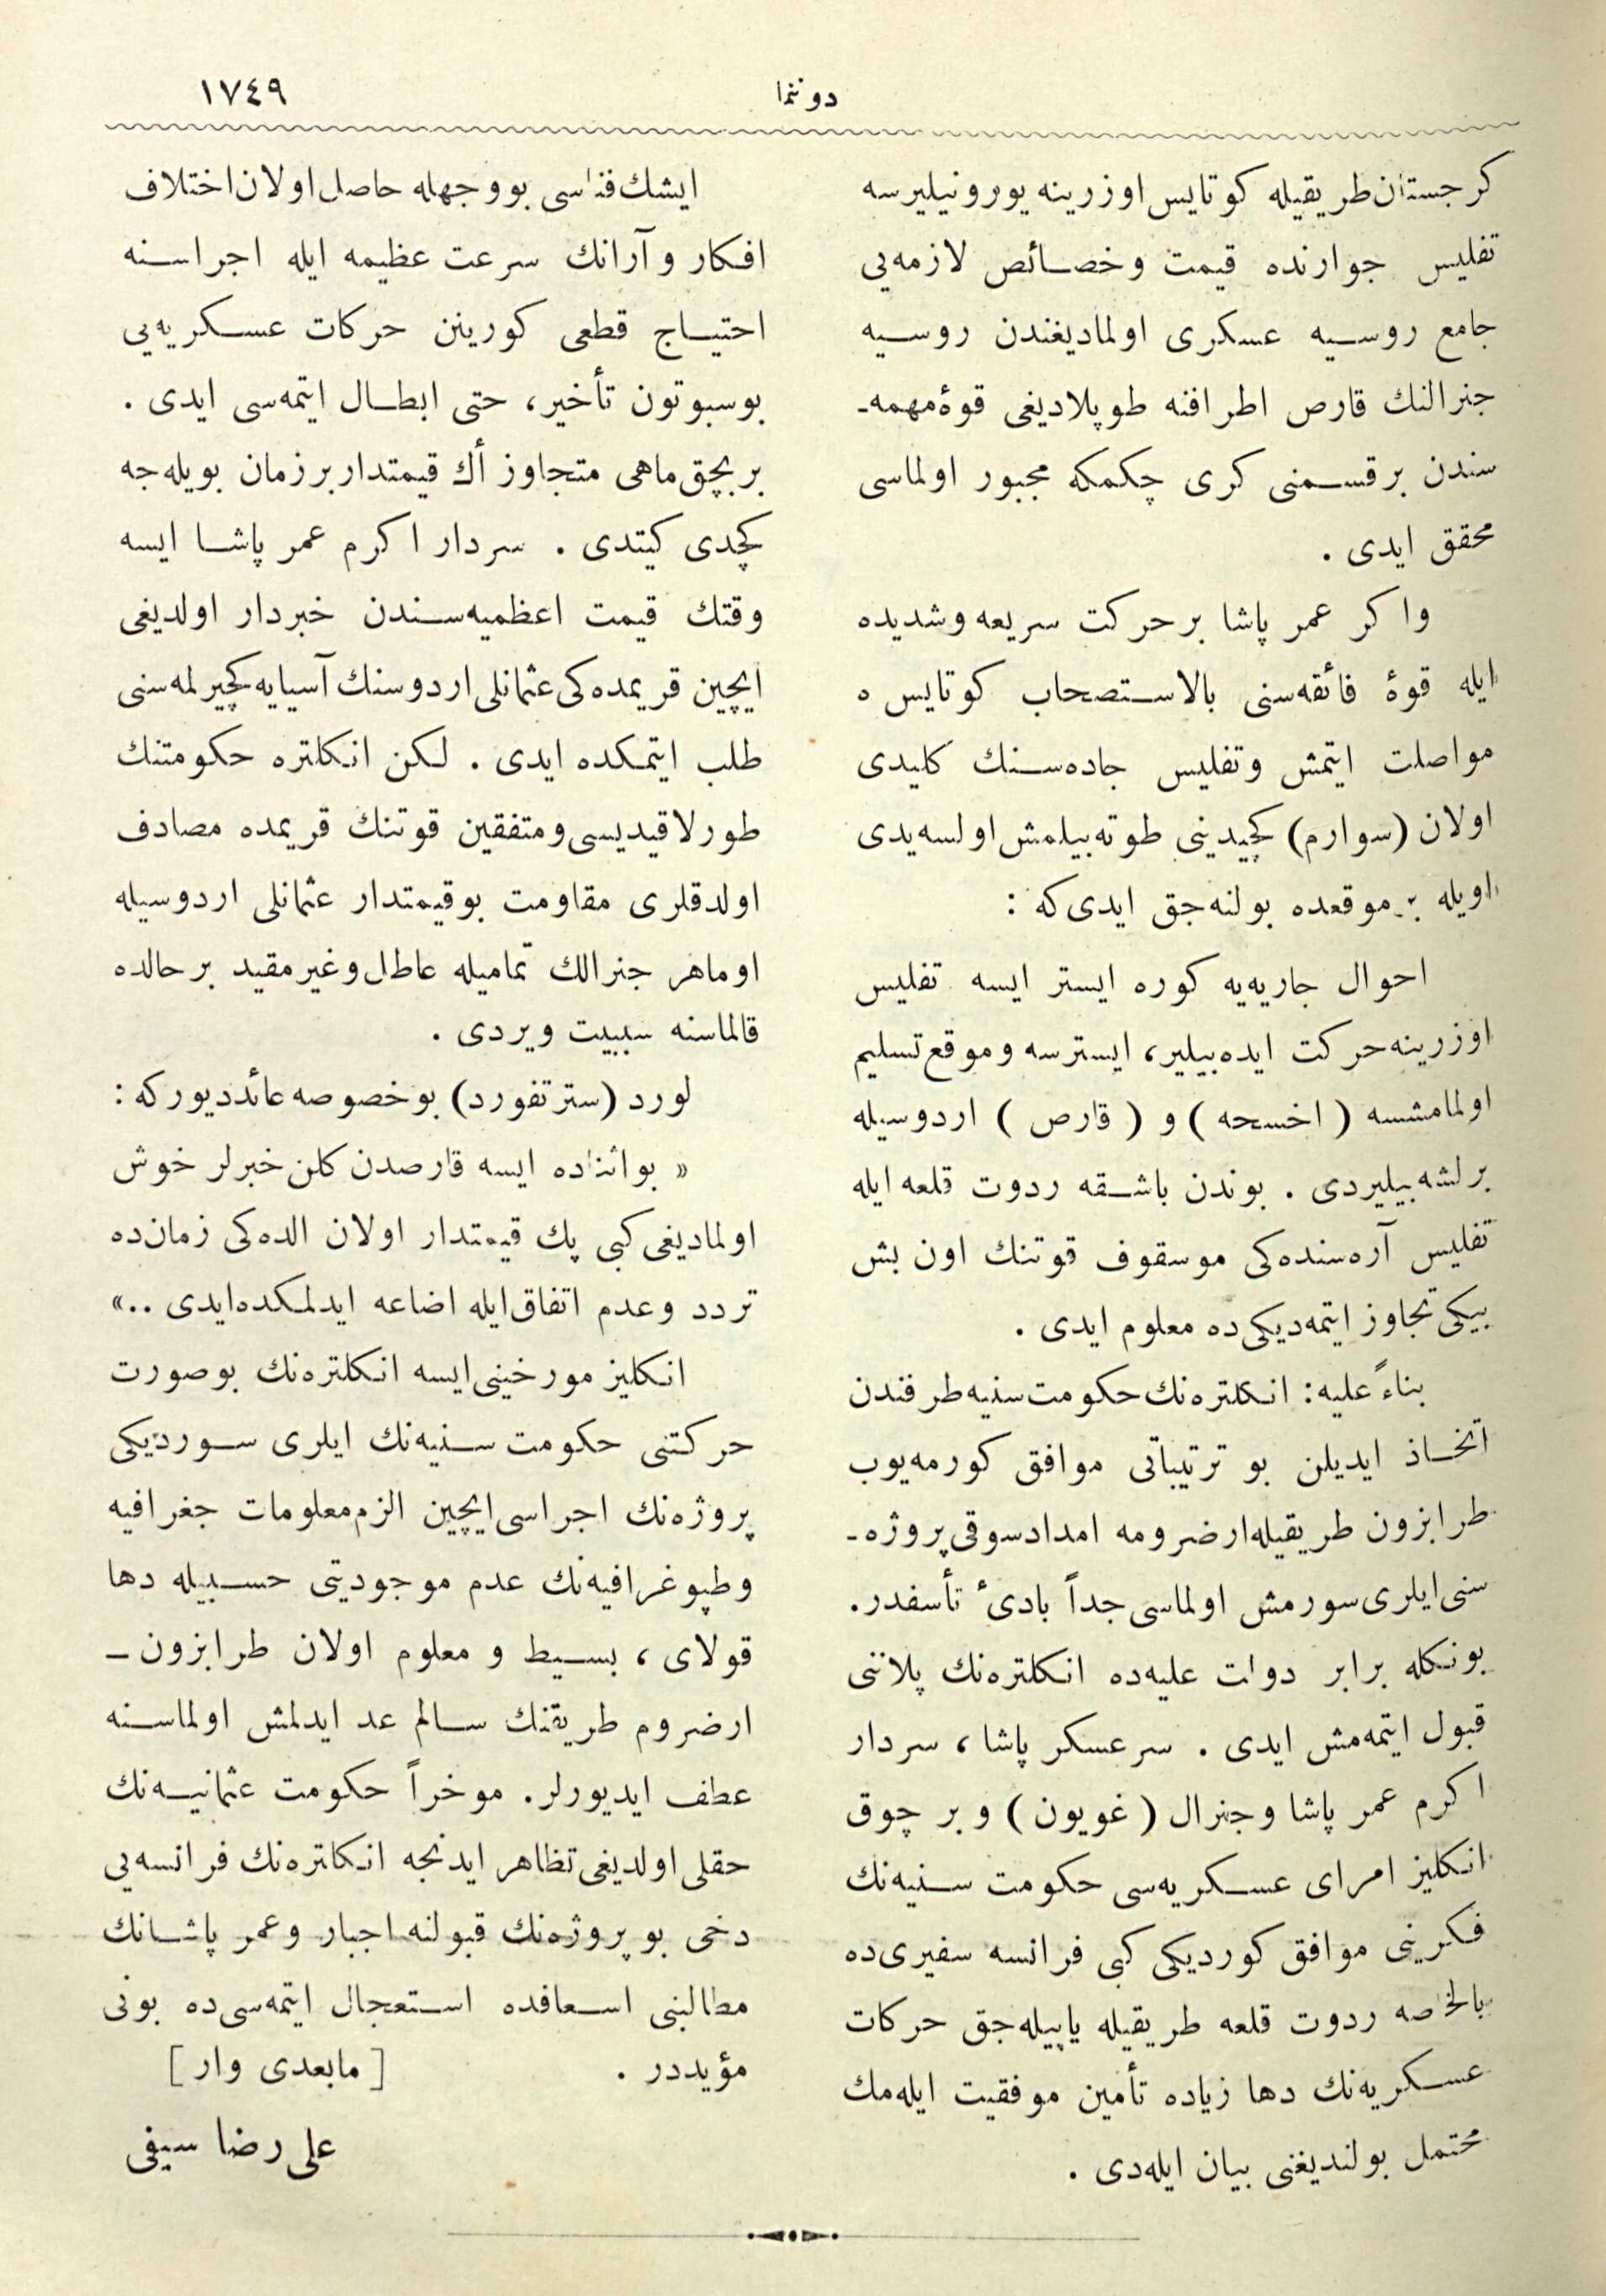 ١٧٤٩
دوننما
كرجستان طريقيله كوتايس اوزرينه يورونيليرسه
تفليس جوارنده قيمت وخصائص لازمه‌يى
جامع روسيه عسكرى اولماديغندن روسيه
جنرالنك قارص اطرافنه طوپلاديغى قوهٔ مهمه-
سندن برقسمنى كرى چكمكه مجبور اولماسى
محقق ايدى .
واكر عمر پاشا برحركت سريعه وشديده
ايله قوهٔ فائقه‌سنى بالاستصحاب كوتايس ه
مواصلت ايتمش وتفليس جاده‌سنك كليدى
اولان (سوارم) كچيدينى طوته‌بيلمش اولسه‌يدى
اويله بر موقعده بولنه‌جق ايدى‌كه :
احوال جاريه‌يه كوره ايستر ايسه تفليس
اوزرينه حركت ايده‌بيلير، ايسترسه وموقع تسليم
اولمامشسه ( اخسحه ) و ( قارص ) اردوسيله
برلشه‌بيليردى . بوندن باشقه ردوت قلعه ايله
تفليس آره‌سنده‌كى موسقوف قوتنك اون بش
بيكى تجاوز ايتمه‌ديكى‌ده معلوم ايدى .
بناءً عليه: انكلتره‌نك حكومت سنيه طرفندن
اتخاذ ايديلن بو ترتيباتى موافق كورمه‌يوب
طرابزون طريقيله ارضرومه امداد سوقى پروژه-
سنى ايلرى سورمش اولماسى جداً بادئ تأسفدر.
بونكله برابر دولت عليه‌ده انكلتره‌نك پلاننى
قبول ايتمه‌مش ايدى . سرعسكر پاشا، سردار
اكرم عمر پاشا وجنرال ( غويون ) و بر چوق
انكليز امراى عسكريه‌سى حكومت سنيه‌نك
فكرينى موافق كورديكى كبى فرانسه سفيرى‌ده
بالخاصه ردوت قلعه طريقيله ياپيله‌جق حركات
عسكريه‌نك دها زياده تأمين موفقيت ايله‌مك
محتمل بولنديغنى بيان ايله‌دى .
ايشك فناسى بو وجهله حاصل اولان اختلاف
افكار و آرانك سرعت عظيمه ايله اجراسنه
احتياج قطعى كورينن حركات عسكريه‌يى
بوسبوتون تأخير، حتى ابطال ايتمه‌سى ايدى .
بربچق ماهى متجاوز أك قيمتدار برزمان بويله‌جه
كچدى كيتدى . سردار اكرم عمر پاشا ايسه
وقتك قيمت اعظميه‌سندن خبردار اولديغى
ايچين قريمده‌كى عثمانلى اردوسنك آسيايه كچيرلمه‌سنى
طلب ايتمكده ايدى . لكن انكلتره حكومتنك
طور لاقيديسى ومتفقين قوتنك قريمده مصادف
اولدقلرى مقاومت بوقيمتدار عثمانلى اردوسيله
اوماهر جنرالك تماميله عاطل وغيرمقيد برحالده
قالماسنه سببيت ويردى .
لورد (سترتفورد) بوخصوصه عائد ديوركه :
« بواثناده ايسه قارصدن كلن خبرلر خوش
اولماديغى كبى پك قيمتدار اولان الده‌كى زمان‌ده
تردد وعدم اتفاق ايله اضاعه ايدلمكده‌ايدى ..»
انكليز مورخينى ايسه انكلتره‌نك بوصورت
حركتنى حكومت سنيه‌نك ايلرى سورديكى
پروژه‌نك اجراسى ايچين الزم معلومات جغرافيه
وطپوغرافيه‌نك عدم موجوديتى حسبيله دها
قولاى ، بسيط و معلوم اولان طرابزون ــ
ارضروم طريقنك سالم عد ايدلمش اولماسنه
عطف ايديورلر. موخراً حكومت عثمانيه‌نك
حقلى اولديغى تظاهر ايدنجه انكلتره‌نك فرانسه‌يى
دخى بو پروژه‌نك قبولنه اجبار وعمر پاشانك
مطالبنى اسعافده استعجال ايتمه‌سى‌ده بونى
مؤيددر .
[ مابعدى وار ]
على رضا سيفى